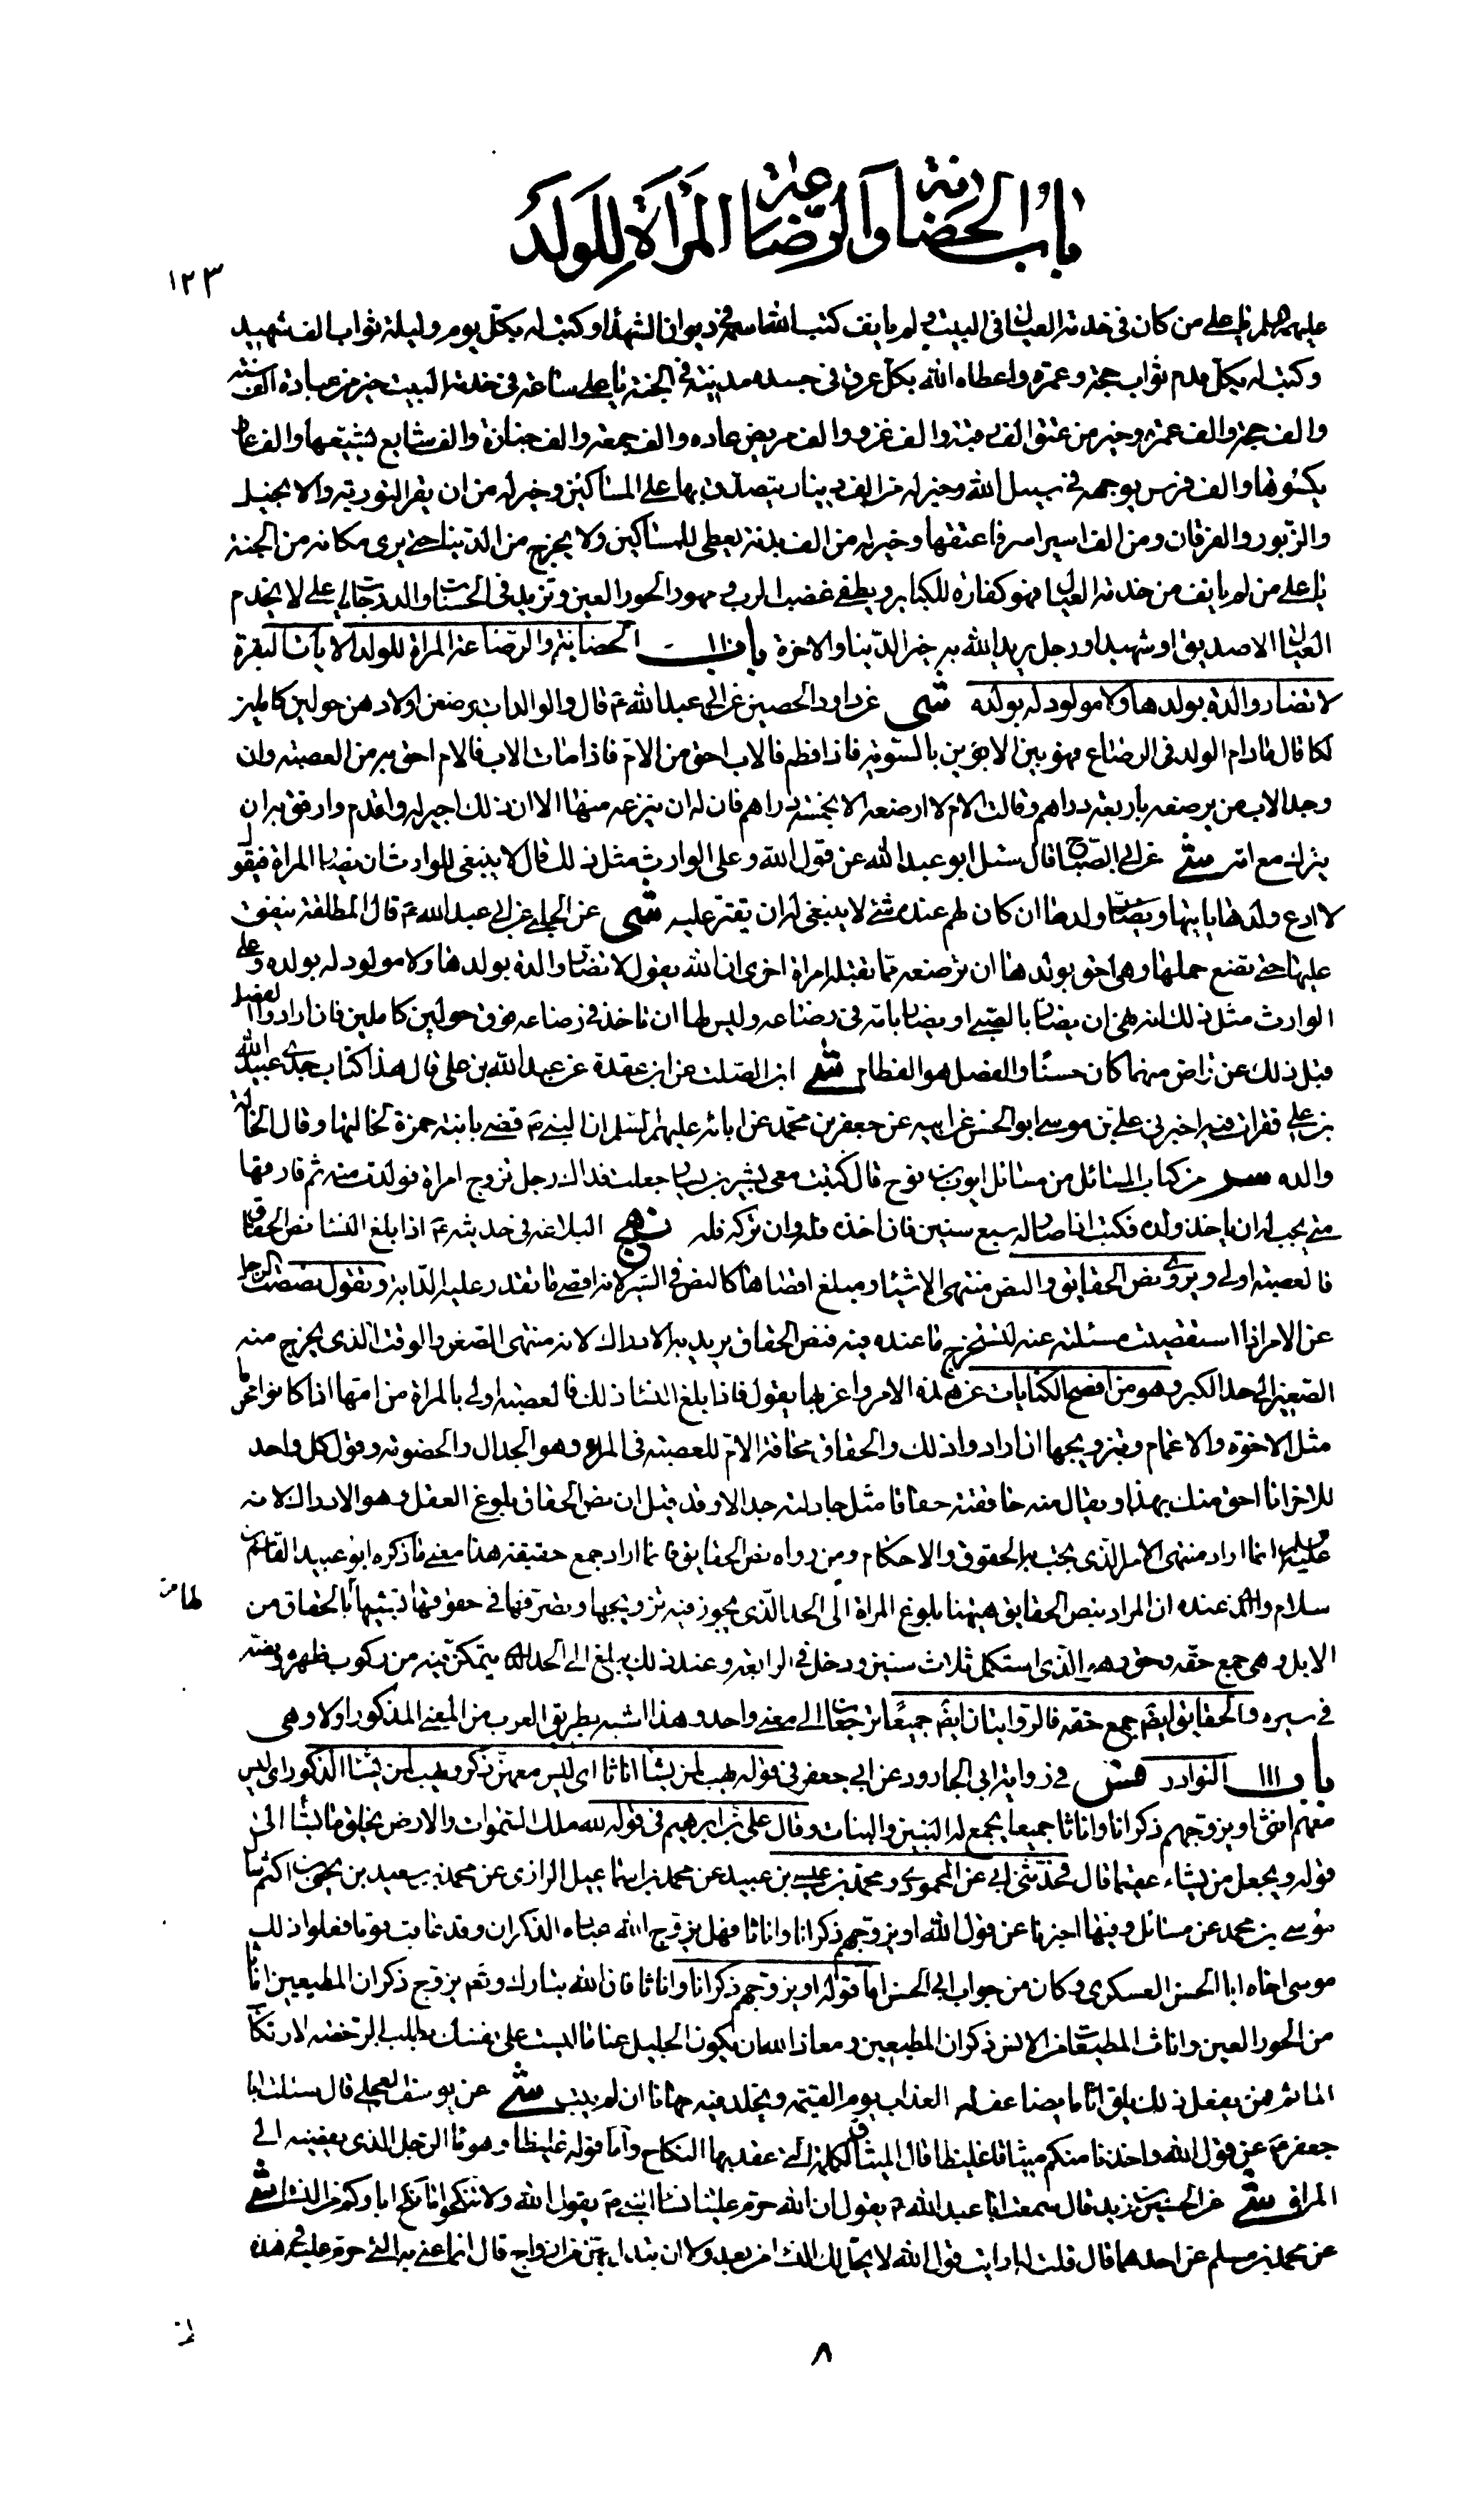 باب الحضانة والرضاعة المرأة للولد
١٢٣
عليهم السلام يا علي من كان في خدمة العيال في البيت ولم يأنف كتب الله اسمه في ديوان الشهداء وكتب له بكل يوم وليلة ثواب الف شهيد
وكتب له بكل قدم ثواب حجة وعمرة واعطاه الله بكل عرق في جسده مدينة في الجنة يا علي ساعة في خدمة البيت خير من عبادة الف سنة
والف حجة والف عمرة وخير من عتق الف رقبة والف غزوة والف مريض عاده والف جمعة والف جنازة والف شابع يشبعها والف عار
يكسوها والف فرس يوجهه في سبيل الله وخير له من الف دينار يتصدق بها على المساكين وخير له من ان يقرا التورية والانجيل
والزبور والفرقان ومن الف اسير اسر فاعتقها وخير له من الف بدنة يعطى للمساكين ولا يخرج من الدنيا حتى يرى مكانه من الجنة
يا علي من لم يأنف من خدمة العيال فهو كفارة للكباير ويطفى غضب الرب ومهور الحور العين وتزيد في الحسنات والدرجات يا علي لا يخدم
العيال الا صديق او شهيد او رجل يريد الله به خير الدنيا والاخرة باب الحضانة والرضاعة المراة للولد الايات البقرة
لا تضار والدة بولدها ولا مولود له بولده شى عن داود الحصين عن ابي عبد الله ع قال والوالدات يرضعن اولادهن حولين كاملين
قال ما دام الولد في الرضاع فهو بين الابوين بالسوية فاذا فطم فالاب احق من الام فاذا مات الاب فالام احق به من العصبة وان
وجد الاب من يرضعه باربعة دراهم وقالت الام لا ارضعه الا بخمسة دراهم فان له ان ينزعه منها الا ان ذلك اجبر له واقدم وارفق به ان
يترك مع امه شى عن ابي الصباح قال سئل ابو عبد الله عن قول الله وعلى الوارث مثل ذلك قال لا ينبغي للوارث ان يضار المراة فيقول
لا ادع ولدها ياتيها ويضار ولدها ان كان لهم عنده شئ لا ينبغي له ان يقتر عليه شى عن الحلبي عن ابي عبد الله ع قال المطلقة ينفق
عليها حتى تضع حملها وهي احق بولدها ان ترضعه بما تقبله امراة اخرى ان الله يقول لا تضار والدة بولدها ولا مولود له بولده وعلى
الوارث مثل ذلك انه نهى ان يضار بالصبي او يضار بامه في رضاعه وليس لها ان تاخذ في رضاعه فوق حولين كاملين فان ارادوا الفصل
قبل ذلك عن تراض منهما كان حسنا والفصل هو الفطام شى ابن الصلت عن ابن عقدة عن عبد الله بن علي قال هذا كتاب جدي عبيد الله
بن علي فقرات فيه اخبرني علي بن موسى ابو الحسن عن ابيه عن جعفر بن محمد عن ابائه عليهم السلم ان النبي ص قضى بابنة حمزة لخالتها وقال الخالة
والده سر من كتاب المسائل من مسائل ايوب بن نوح قال كتبت معي بشير بن بشار جعلت فداك رجل تزوج امراة فولدت منه ثم فارقها
متى يجب له ان ياخذ ولده فكتب اذا صار له سبع سنين فان اخذه فله وان تركه فله نهج البلاغة في حديثه ع اذا بلغ النساء نص الحقاق
فالعصبة اولى ويروى نص الحقايق والنص منتهى الاشياء ومبلغ اقصاها كالنص في السير لانه اقصى ما تقدر عليه الدابة وتقول نصصت الرجل
عن الامر اذا استقصيت مسئلته عنه لتستخرج ما عنده فيه فنص الحقاق يريد به الادراك لانه منتهى الصغر والوقت الذي يخرج منه
الصغير الى حد الكبر وهو من افصح الكنايات عن هذه الامر واغربها يقول فاذا بلغ النساء ذلك فالعصبة اولى بالمراة من امها اذا كانوا محرما
مثل الاخوة والاعمام وبتزويجها ان ارادوا ذلك والحقاق محاقة الام للعصبة في المراة وهو الجدال والخصومة وقول كل واحد
للاخر انا احق منك بهذا ويقال منه حاققته حقاقا مثل جادلته جدالا وقد قيل ان نص الحقاق بلوغ العقل وهو الادراك لانه
عليه السلم انما اراد منتهى الامر الذي يجب به الحقوق والاحكام ومن رواه نص الحقايق فانما اراد جمع حقيقة هذا معنى ما ذكره ابو عبيد القاسم بن
سلام والذي عنده ان المراد بنص الحقايق ههنا بلوغ المراة الى الحد الذي يجوز فيه تزويجها وتصرفها في حقوقها تشبيها بالحقاق من
الابل وهي جمع حقة وحق وهو الذي استكمل ثلاث سنين ودخل في الرابعة وعند ذلك يبلغ الى الحد الذي يتمكن فيه من ركوب ظهره ونصه
في سيره والحقايق ايضم جمع حقه فالروايتان ايضم جميعا ترجعان الى معنى واحد وهذا اشبه بطريق العرب من المعنى المذكور اولا وهى
باب النوادر فس في رواية ابي الجارود عن ابي جعفر في قوله يهب لمن يشاء اناثا اى ليس معهن ذكر ويهب لمن يشاء الذكور اى ليس
معهم انثى او يزوجهم ذكرانا واناثا جميعا يجمع له البنين والبنات وقال علي بن ابرهيم في قوله لله ملك السموات والارض يخلق ما يشاء الى
قوله ويجعل من يشاء عقيما قال فحدثني ابي عن المحمودي ومحمد بن عيسى بن عبيد عن محمد بن اسماعيل الرازي عن محمد بن سعيد بن يحيى بن اكثم سال
موسى بن محمد عن مسائل وفيها اخبرنا عن قول الله او يزوجهم ذكرانا واناثا فهل يزوج الله عباده الذكران وقد عاقب قوما فعلوا ذلك
موسى اخاه ابا الحسن العسكري وكان من جواب ابي الحسن اما قوله او يزوجهم ذكرانا واناثا فان الله تبارك وتعم يزوج ذكران المطيعين اناثا
من الحور العين واناث المطيعات من الانس ذكران المطيعين ومعاذ الله ان يكون الجليل عنا ما لبست على نفسك بطلب الرخصة لارتكاب
الماثم فمن يفعل ذلك يلق اثاما يضاعف له العذاب يوم القيمة ويخلد فيه مهانا ان لم يتب شى عن يوسف العجلي قال سئلت ابا
جعفر ع عن قول الله واخذنا منكم ميثاقا غليظا قال الميثاق الكلمة التي عقد بها النكاح واما قوله غليظا فهو ماء الرجل الذي يفضيه الى
المراة شى عن الحسين بن زيد قال سمعت ابا عبد الله ع يقول ان الله حرم علينا نساء النبي ص يقول الله ولا تنكحوا ما نكح اباؤكم من النساء شى
عن محمد بن مسلم عن احدهما قال قلت له ارايت قول الله لا يحل لك النساء من بعد ولا ان تبدل بهن من ازواج قال انما عنى به التي حرم عليه في هذه
٨